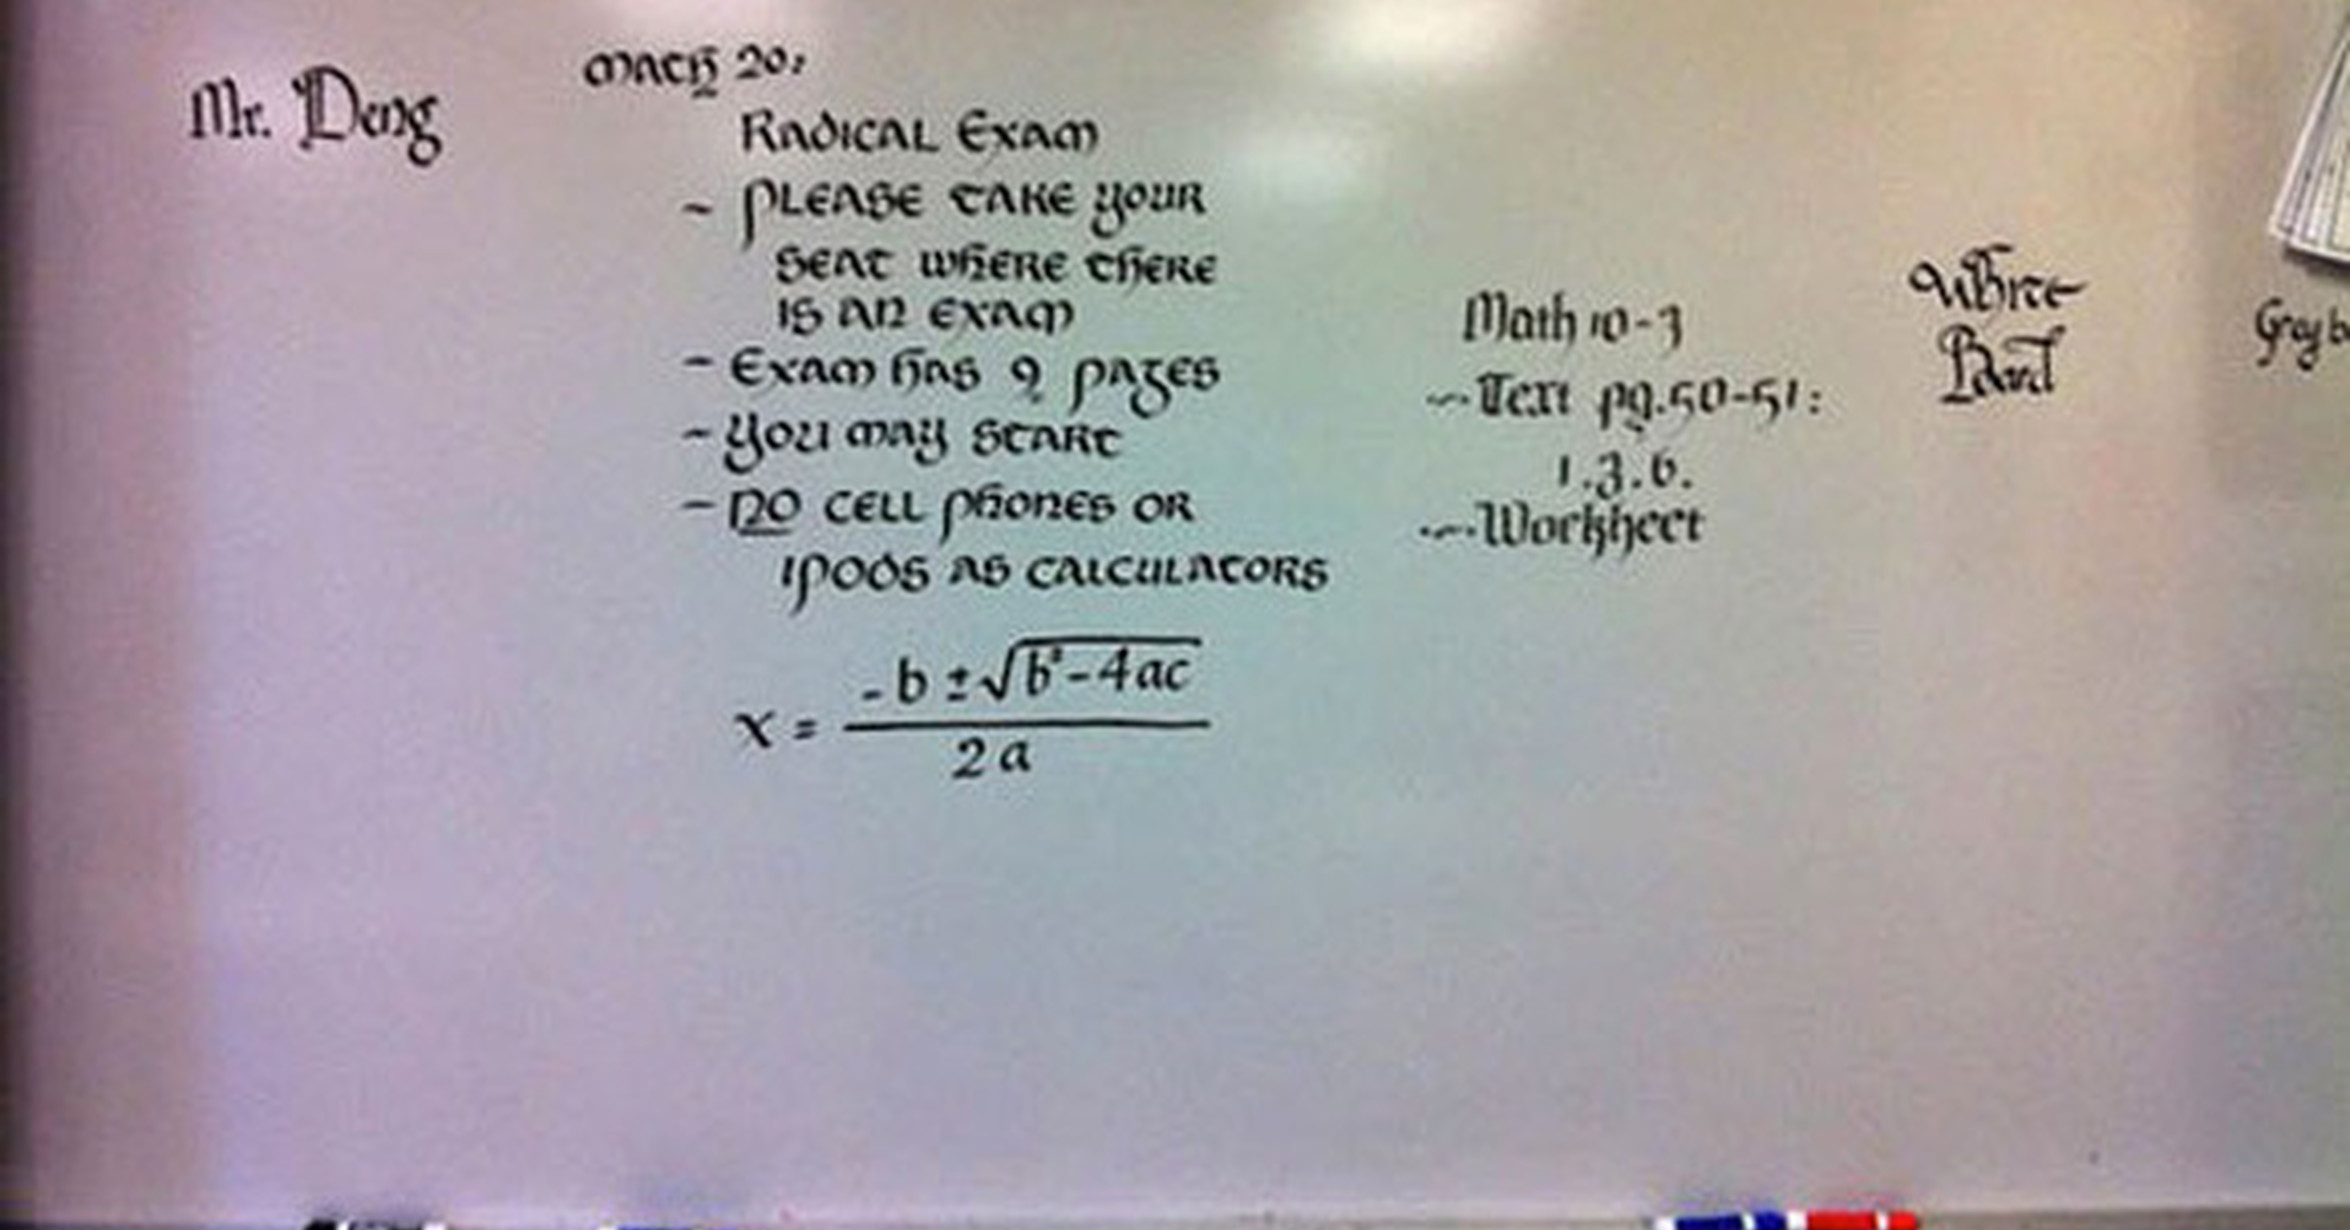 Mr. Deng
Math 20:
Radical Exam
- Please take your
seat where there
is an exam
- Exam has 9 pages
- You may start
- No cell phones or
ipods as calculators
x = -b ± √b²-4ac / 2a
Math 10-3
- Text pg. 50-51:
1.3.6.
- Worksheet
White
Board
Gray b